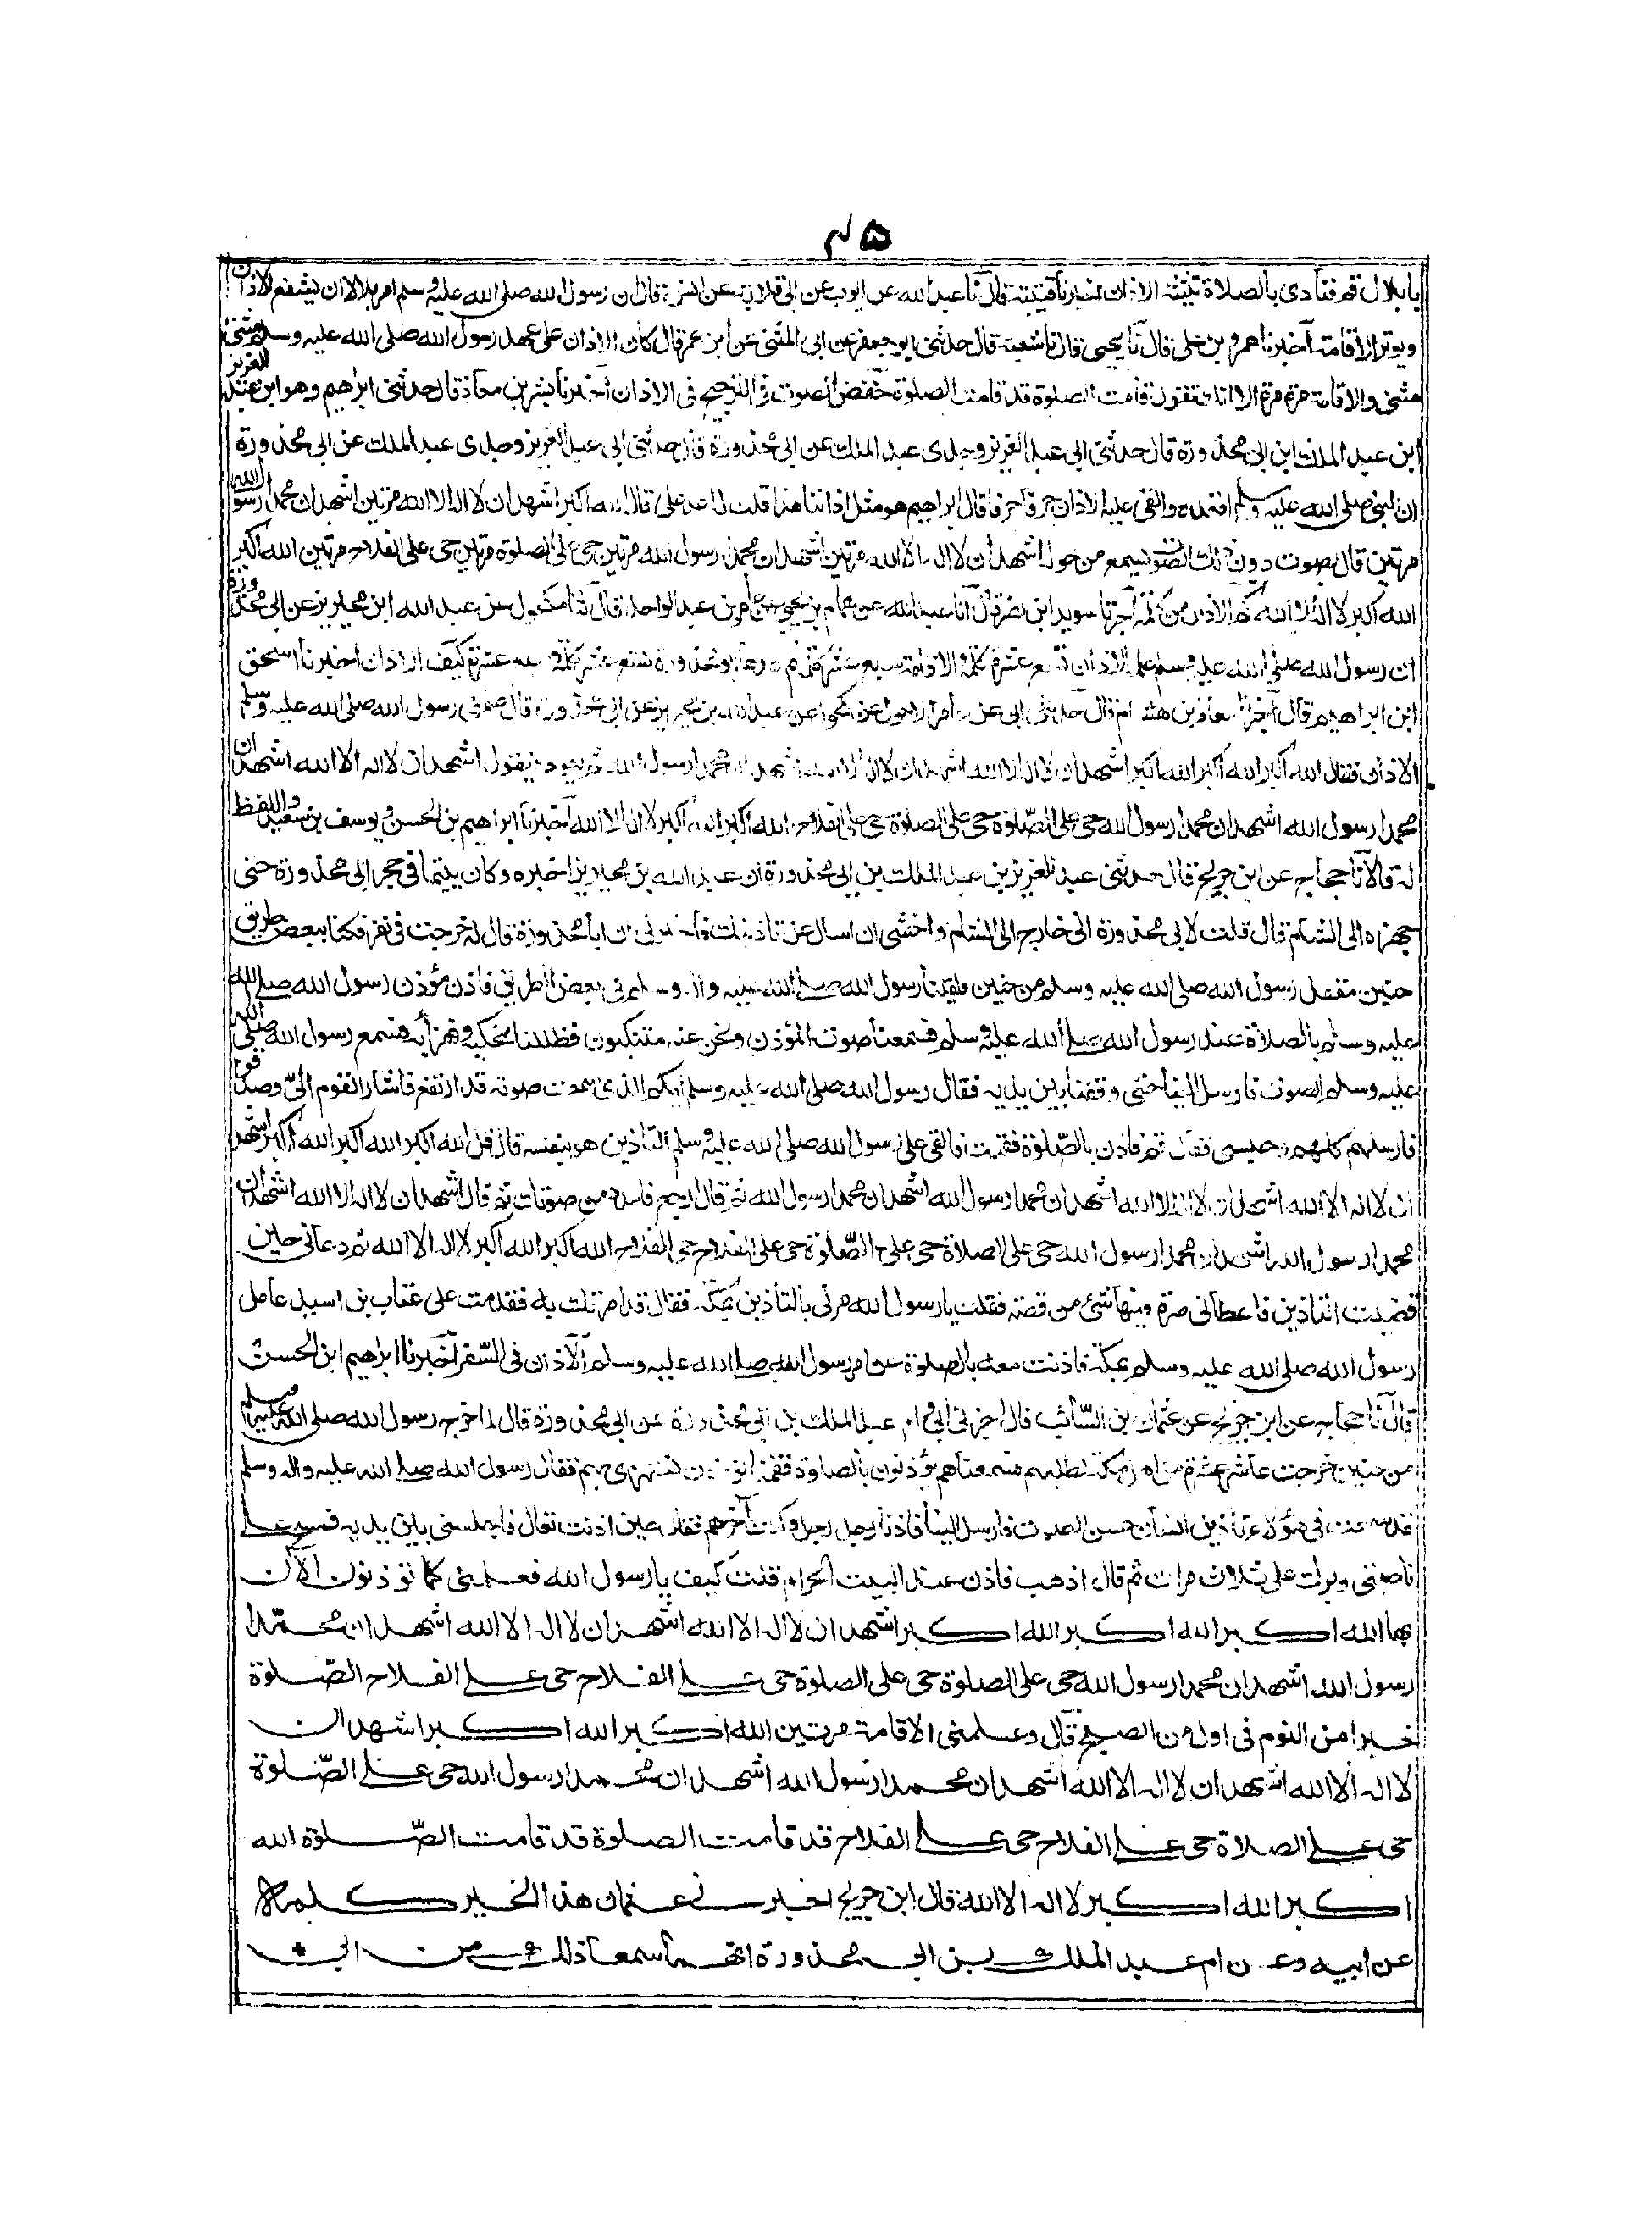 ٤٥
يا بلال قم فنادي بالصلاة تثنية الاذان اخبرنا قتيبة قال نا عبد الله عن ايوب عن ابي قلابة عن انس قال ان رسول الله صلى الله عليه وسلم امر بلالا ان يشفع الاذان
ويوتر الاقامة اخبرنا عمرو بن علي قال نا يحيى قال نا شعبة قال حدثني ابو جعفر عن ابي المثنى عن ابن عمر قال كان الاذان على عهد رسول الله صلى الله عليه وسلم مثنى
مثنى والاقامة مرة مرة الا انك تقول قد قامت الصلوة قد قامت الصلوة خفض الصوت في الترجيع في الاذان اخبرنا بشر بن معاذ قال حدثني ابراهيم وهو ابن عبد العزيز
ابن عبد الملك ابن ابي محذورة قال حدثني ابي عبد العزيز وجدي عبد الملك عن ابي محذورة قال حدثني ابي عبد العزيز وجدي عبد الملك عن ابي محذورة
ان النبي صلى الله عليه وسلم اقعده والقى عليه الاذان حرفا حرفا قال ابراهيم هو مثل اذاننا هذا قلت له اعد علي قال الله اكبر اشهد ان لا اله الا الله مرتين اشهد ان محمدا رسول الله
مرتين قال بصوت دون ذلك الصوت يسمع من حوله اشهد ان لا اله الا الله مرتين اشهد ان محمدا رسول الله مرتين حي على الصلوة مرتين حي على الفلاح مرتين الله اكبر
الله اكبر لا اله الا الله كم الاذان من كلمة اخبرنا سويد ابن نصر قال انا عبد الله عن همام بن يحيى عن عامر بن عبد الواحد قال ثنا مكحول عن عبد الله ابن محيريز عن ابي محذورة
ان رسول الله صلى الله عليه وسلم علمه الاذان تسع عشرة كلمة والاقامة سبع عشرة كلمة ثم عدها ابو محذورة تسع عشرة كلمة وسبع عشرة كيف الاذان اخبرنا اسحق
ابن ابراهيم قال اخبرنا معاذ بن هشام قال حدثني ابي عن عامر الاحول عن مكحول عن عبد الله بن محيريز عن ابي محذورة قال علمني رسول الله صلى الله عليه وسلم
الاذان فقال الله اكبر الله اكبر الله اكبر الله اكبر اشهد ان لا اله الا الله اشهد ان لا اله الا الله اشهد ان محمدا رسول الله ثم يعود فيقول اشهد ان لا اله الا الله اشهد ان
محمدا رسول الله اشهد ان محمدا رسول الله حي على الصلوة حي على الصلوة حي على الفلاح الله اكبر الله اكبر لا اله الا الله اخبرنا ابراهيم بن الحسن ويوسف بن سعيد واللفظ
له قالا نا حجاج عن ابن جريج قال حدثني عبد العزيز بن عبد الملك بن ابي محذورة ان عبد الله بن محيريز اخبره وكان يتيما في حجر ابي محذورة حتى
جهزه الى الشام قال قلت لابي محذورة اني خارج الى الشام واخشى ان اسال عن تاذينك فاخبرني ان ابا محذورة قال له خرجت في نفر فكنا ببعض طريق
حنين مقفل رسول الله صلى الله عليه وسلم من حنين فلقينا رسول الله صلى الله عليه واله وسلم في بعض الطريق فاذن مؤذن رسول الله صلى الله
عليه وسلم بالصلاة عند رسول الله صلى الله عليه وسلم فسمعنا صوت المؤذن ونحن عنه متنكبون فظللنا نحكيه ونهزأ به فسمع رسول الله صلى الله
عليه وسلم الصوت فارسل الينا حتى وقفنا بين يديه فقال رسول الله صلى الله عليه وسلم ايكم الذي سمعت صوته قد ارتفع فاشار القوم الي وصدقوا
فارسلهم كلهم وحبسني فقال قم فاذن بالصلوة فقمت فالقى علي رسول الله صلى الله عليه وسلم التاذين هو بنفسه قال قل الله اكبر الله اكبر الله اكبر الله اكبر اشهد
ان لا اله الا الله اشهد ان لا اله الا الله اشهد ان محمدا رسول الله اشهد ان محمدا رسول الله ثم قال ارجع فامدد من صوتك ثم قال اشهد ان لا اله الا الله اشهد ان
محمدا رسول الله اشهد ان محمدا رسول الله حي على الصلاة حي على الصلوة حي على الفلاح حي الفلاح الله اكبر الله اكبر لا اله الا الله ثم دعاني حين
قضيت التاذين فاعطاني صرة فيها شئ من فضة فقلت يا رسول الله مرني بالتاذين بمكة فقال قد امرتك به فقدمت على عتاب بن اسيد عامل
رسول الله صلى الله عليه وسلم بمكة فاذنت معه بالصلوة عن امر رسول الله صلى الله عليه وسلم الاذان في السفر اخبرنا ابراهيم ابن الحسن
قال نا حجاج عن ابن جريج عن عثمان بن السائب قال اخبرني ابي وام عبد الملك بن ابي محذورة عن ابي محذورة قال لما خرج رسول الله صلى الله عليه وسلم
من حنين خرجت عاشر عشرة من اهل مكة نطلبهم فسمعناهم يؤذنون بالصلوة فقمنا نؤذن نستهزئ بهم فقال رسول الله صلى الله عليه واله وسلم
قد سمعت في هؤلاء تاذين انسان حسن الصوت فارسل الينا فاذنا رجل رجل وكنت آخرهم فقال حين اذنت تعال فاجلسني بين يديه فمسح على
ناصيتي وبرك علي ثلاث مرات ثم قال اذهب فاذن عند البيت الحرام قلت كيف يا رسول الله فعلمني كما تؤذنون الآن
بها الله اكبر الله اكبر الله اكبر اشهد ان لا اله الا الله اشهد ان لا اله الا الله اشهد ان محمدا
رسول الله اشهد ان محمدا رسول الله حي على الصلوة حي على الصلوة حي على الفلاح حي على الفلاح الصلوة
خير من النوم في اول من الصبح قال وعلمني الاقامة مرتين الله اكبر الله اكبر اشهد ان
لا اله الا الله اشهد ان لا اله الا الله اشهد ان محمدا رسول الله اشهد ان محمدا رسول الله حي على الصلوة
حي على الصلاة حي على الفلاح حي على الفلاح قد قامت الصلوة قد قامت الصلوة الله
اكبر الله اكبر لا اله الا الله قال ابن جريج اخبرني عثمان هذا الخبر كله
عن ابيه وعن ام عبد الملك بن ابي محذورة انهما سمعا ذلك من ابي